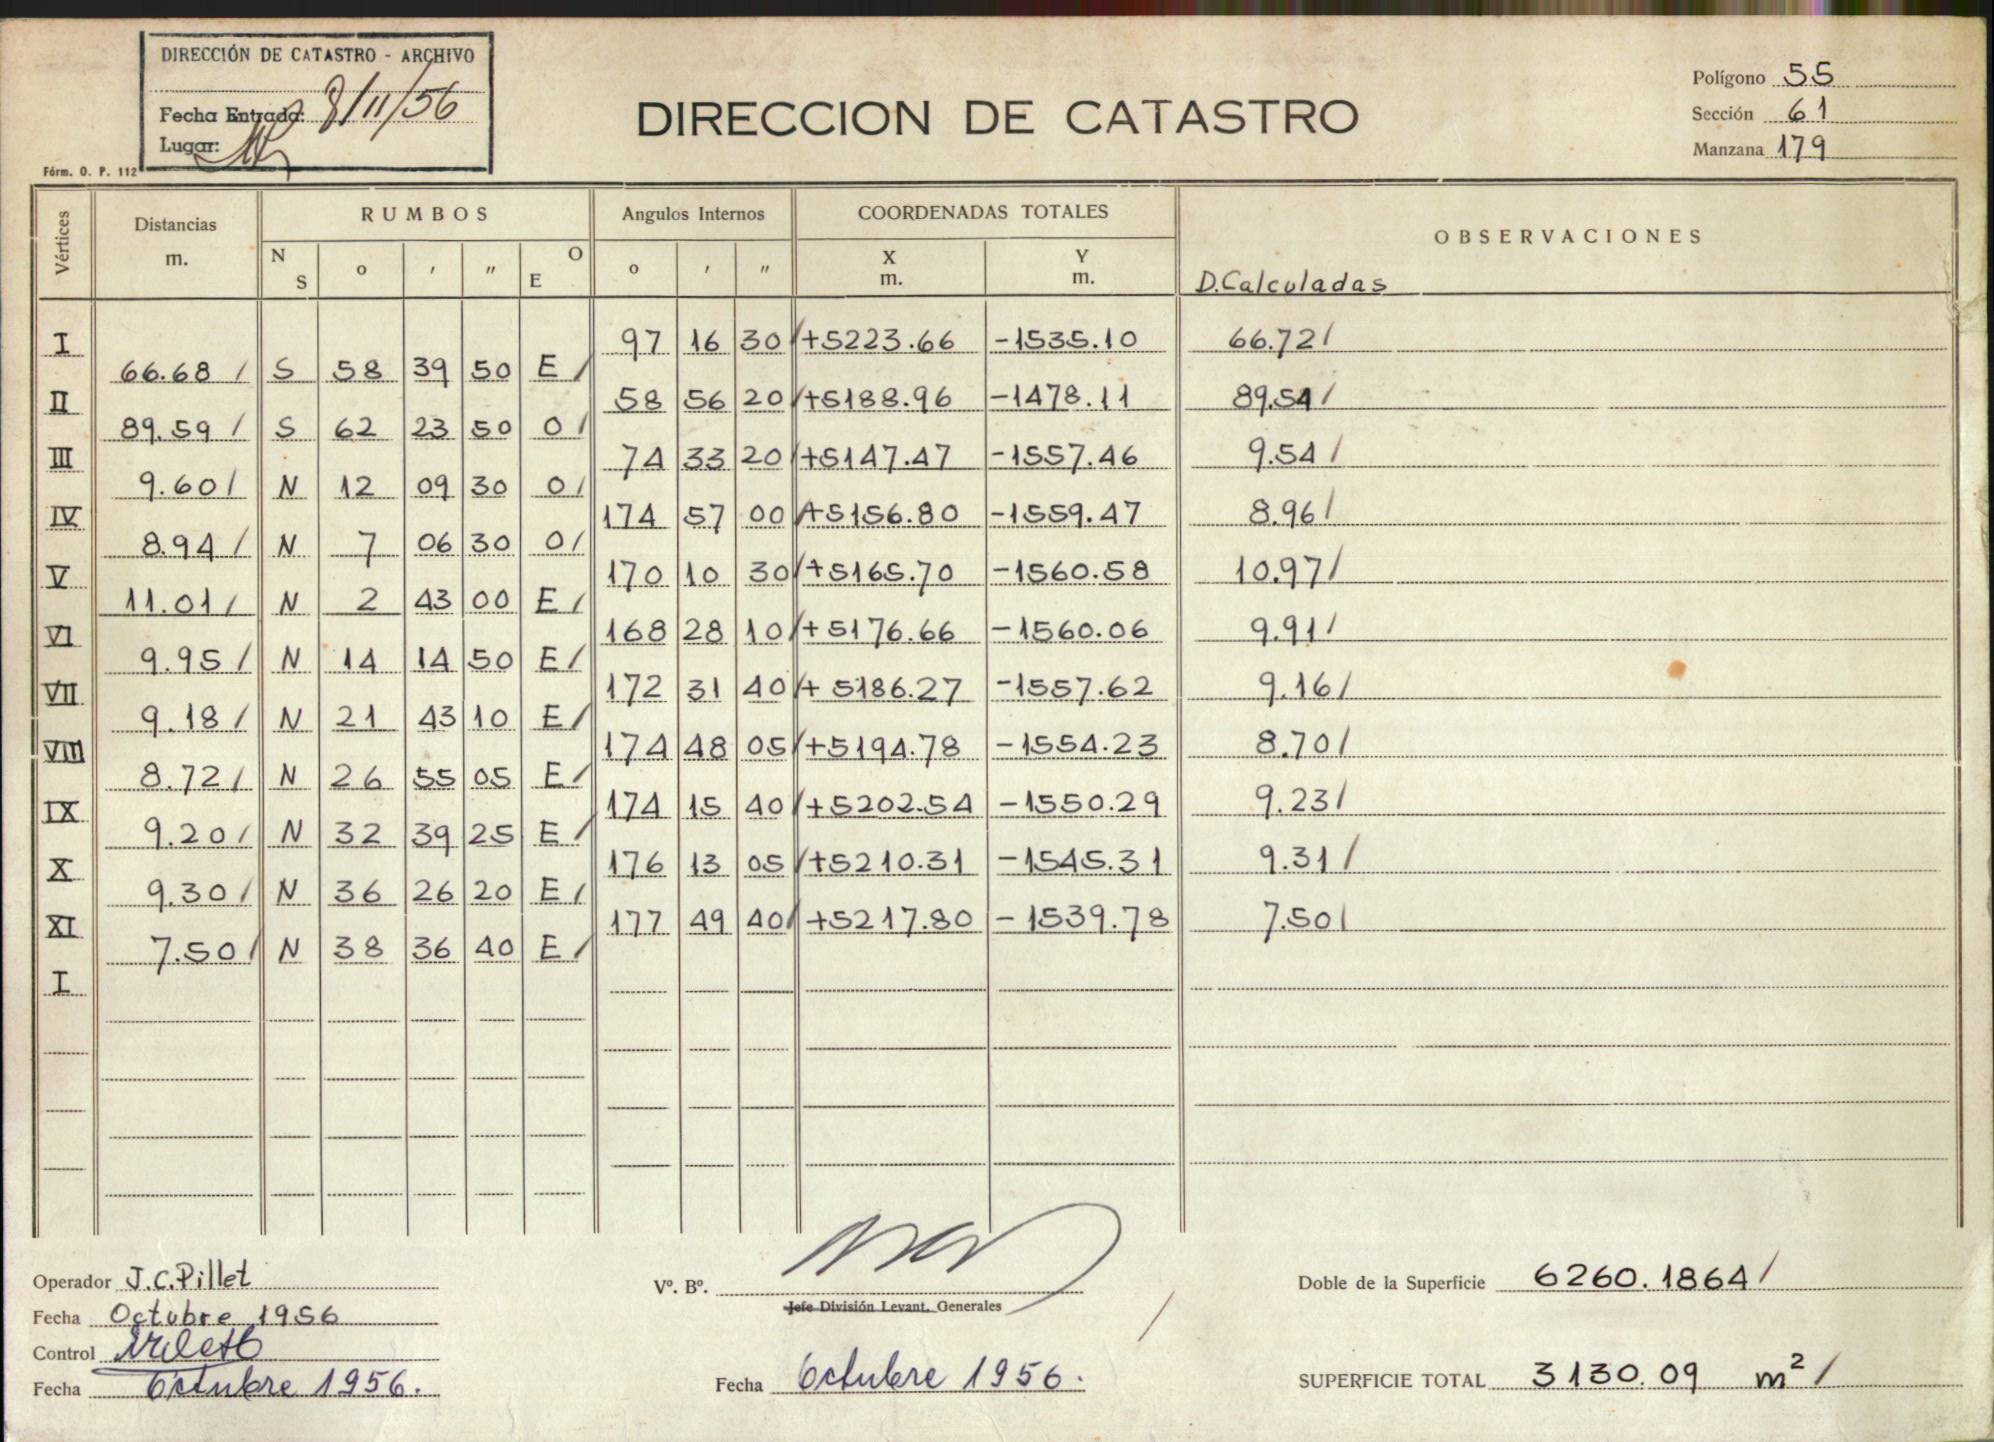 DIRECCIÓN DE CATASTRO - ARCHIVO
Fecha Entrada: 8/11/56
Lugar:
Fórm. O. P. 112
DIRECCION DE CATASTRO
Polígono 55
Sección 61
Manzana 179
Vértices Distancias m. RUMBOS Angulos Internos COORDENADAS TOTALES OBSERVACIONES
N S o ′ ″ O E o ′ ″ X m. Y m. D.Calculadas
I 97 16 30/ +5223.66 -1535.10 66.72/
66.68 / S 58 39 50 E /
II 58 56 20/ +5188.96 -1478.11 89.54/
89.59 / S 62 23 50 O/
III 74 33 20/ +5147.47 -1557.46 9.54/
9.60/ N 12 09 30 O/
IV 174 57 00/ +5156.80 -1559.47 8.96/
8.94/ N 7 06 30 O/
V 170 10 30/ +5165.70 -1560.58 10.97/
11.01/ N 2 43 00 E/
VI 168 28 10/ +5176.66 -1560.06 9.91/
9.95/ N 14 14 50 E/
VII 172 31 40/ +5186.27 -1557.62 9.16/
9.18/ N 21 43 10 E/
VIII 174 48 05/ +5194.78 -1554.23 8.70/
8.72/ N 26 55 05 E/
IX 174 15 40/ +5202.54 -1550.29 9.23/
9.20/ N 32 39 25 E/
X 176 13 05/ +5210.31 -1545.31 9.31/
9.30/ N 36 26 20 E/
XI 177 49 40/ +5217.80 -1539.78 7.50/
7.50/ N 38 36 40 E/
I
Operador J.C.Pillet
Fecha Octubre 1956
Control
Fecha Octubre 1956.
Vº. Bº.
Jefe División Levant. Generales
Fecha Octubre 1956.
Doble de la Superficie 6260.1864/
SUPERFICIE TOTAL 3130.09 m²/